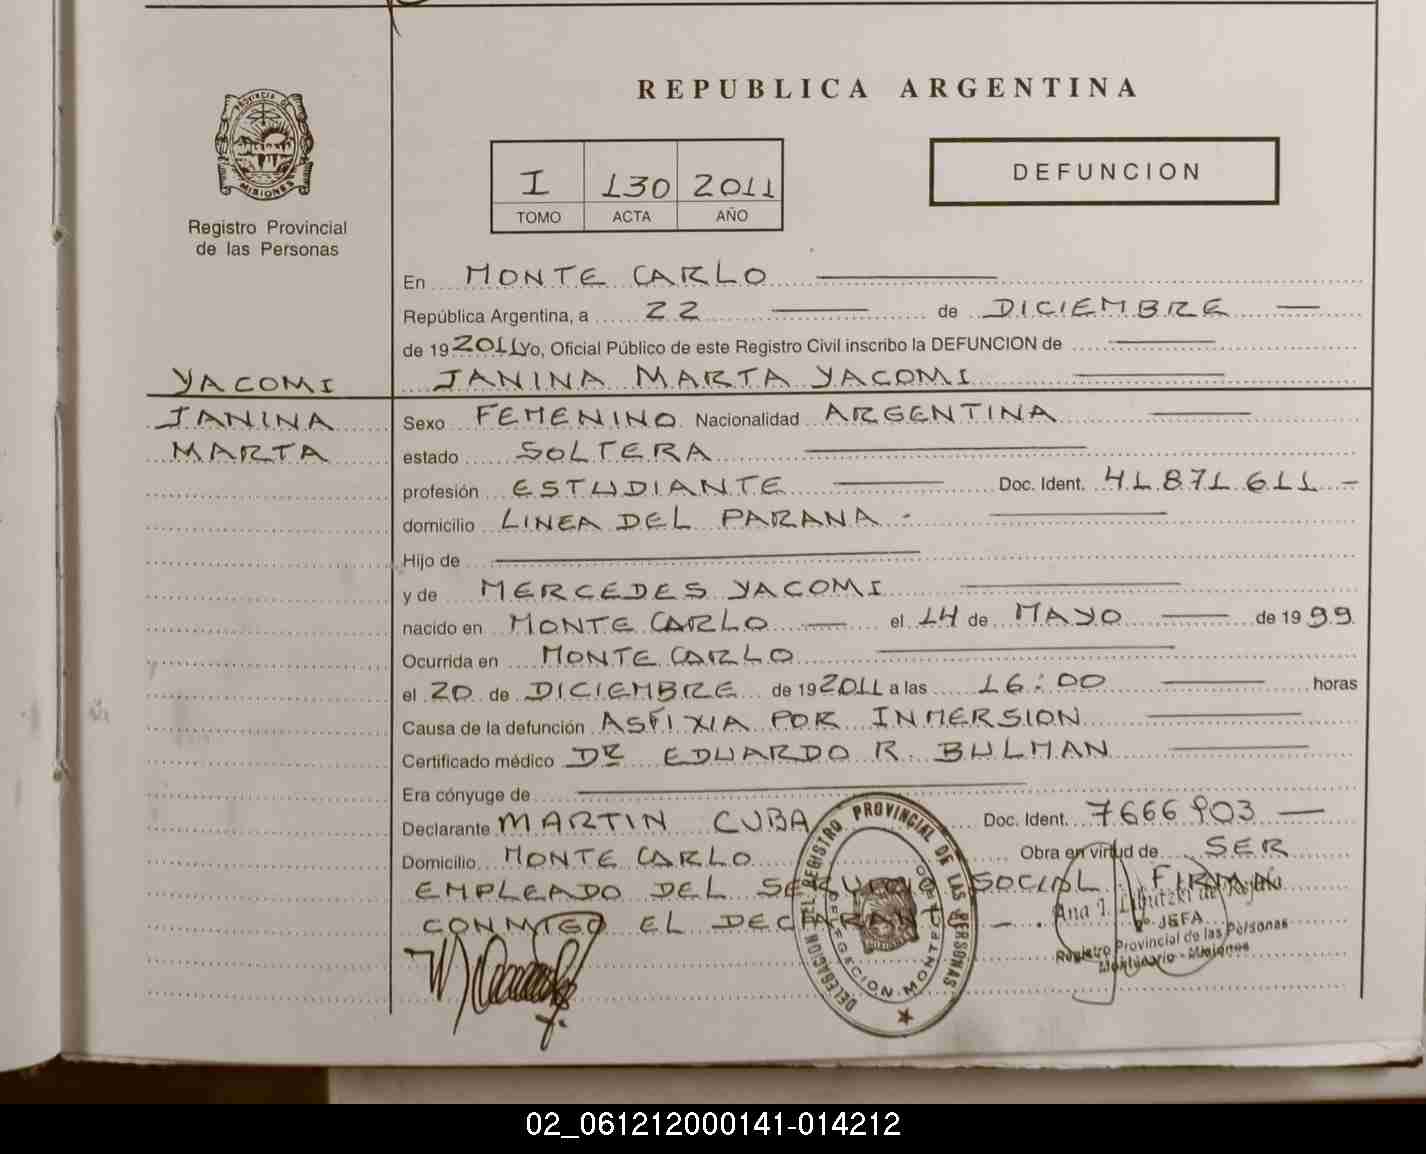 REPUBLICA ARGENTINA
PROVINCIA DE
MISIONES
Registro Provincial
de las Personas
I 130 2011
TOMO ACTA AÑO
DEFUNCION
En MONTE CARLO
República Argentina, a 22 de DICIEMBRE
de 19 2011 Yo, Oficial Público de este Registro Civil inscribo la DEFUNCION de
YACOMI JANINA MARTA YACOMI
JANINA Sexo FEMENINO Nacionalidad ARGENTINA
MARTA estado SOLTERA
profesión ESTUDIANTE Doc. Ident. 41.871.611 -
domicilio LINEA DEL PARANA -
Hijo de
y de MERCEDES YACOMI
nacido en MONTE CARLO el 14 de MAYO de 19 99
Ocurrida en MONTE CARLO
el 20 de DICIEMBRE de 19 2011 a las 16:00 horas
Causa de la defunción ASFIXIA POR INMERSION
Certificado médico DR EDUARDO R. BULMAN
Era cónyuge de
Declarante MARTIN CUBA Doc. Ident. 7666903
Domicilio MONTE CARLO Obra en virtud de SER
EMPLEADO DEL SERVICIO SOCIAL. FIRMA
CONMIGO EL DECLARANTE - . -
DELEGACION DEL REGISTRO PROVINCIAL DE LAS PERSONAS
Ana
JEFA
Registro Provincial de las Personas
Misiones
02_061212000141-014212